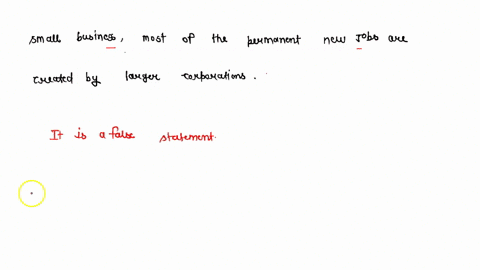 small business, most of the permanent new Jobs are
created by larger corporations.
It is a false statement.